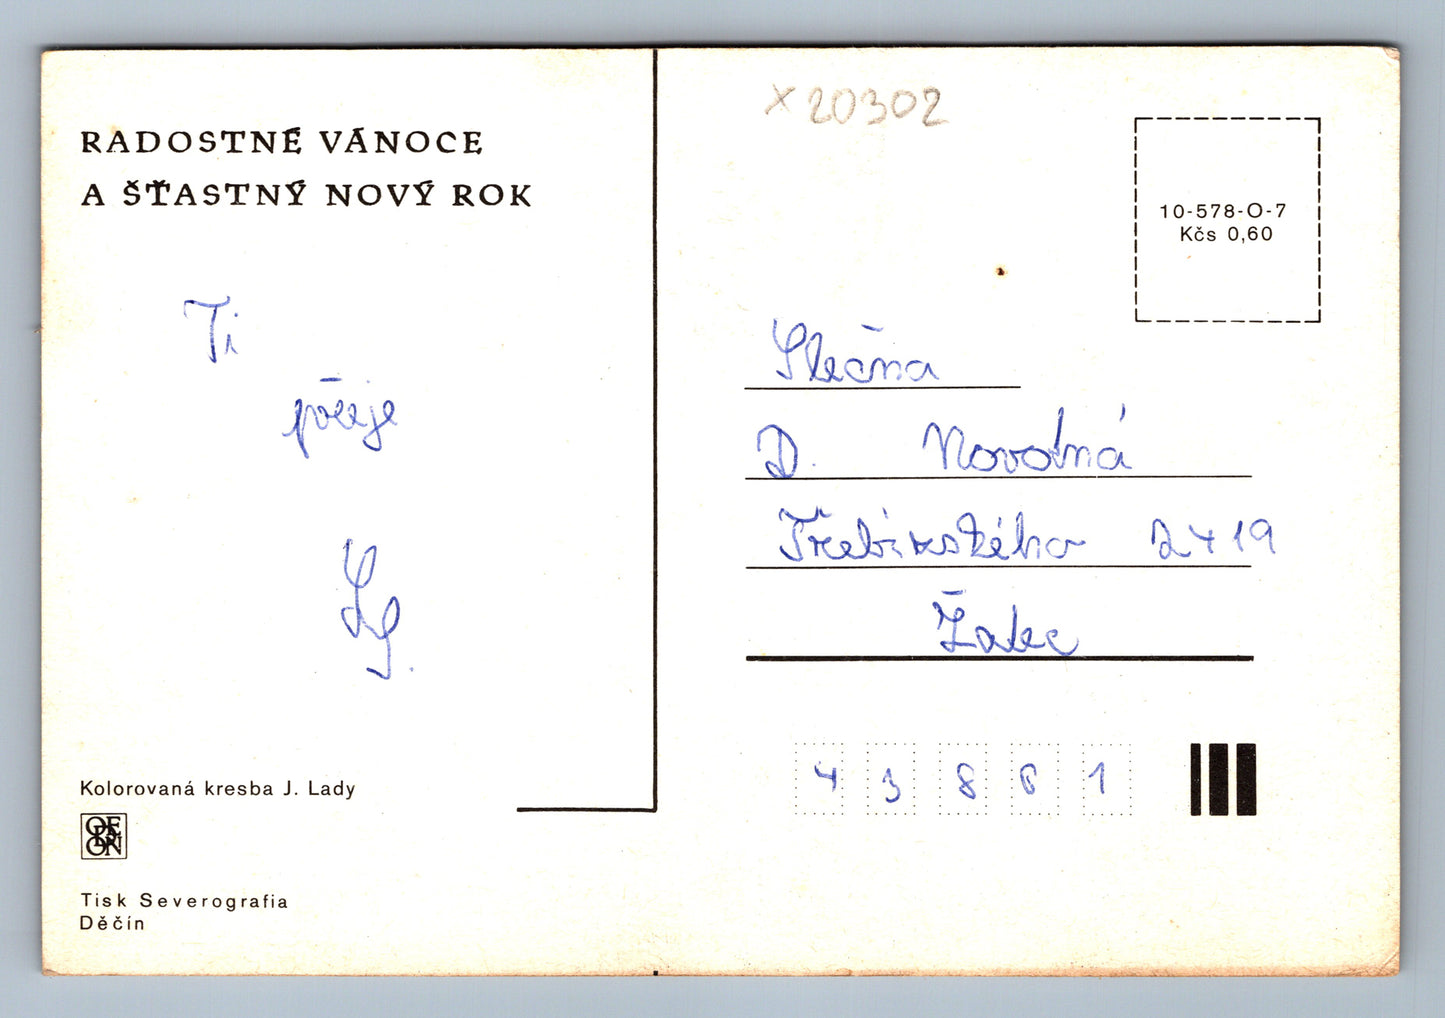 RADOSTNÉ VÁNOCE
A ŠŤASTNÝ NOVÝ ROK
Ti
přeje
x 20302
10-578-O-7
Kčs 0,60
Slečna
D. Novotná
Třebízského 2419
Žatec
43801
Kolorovaná kresba J. Lady
ODEON
Tisk Severografia
Děčín